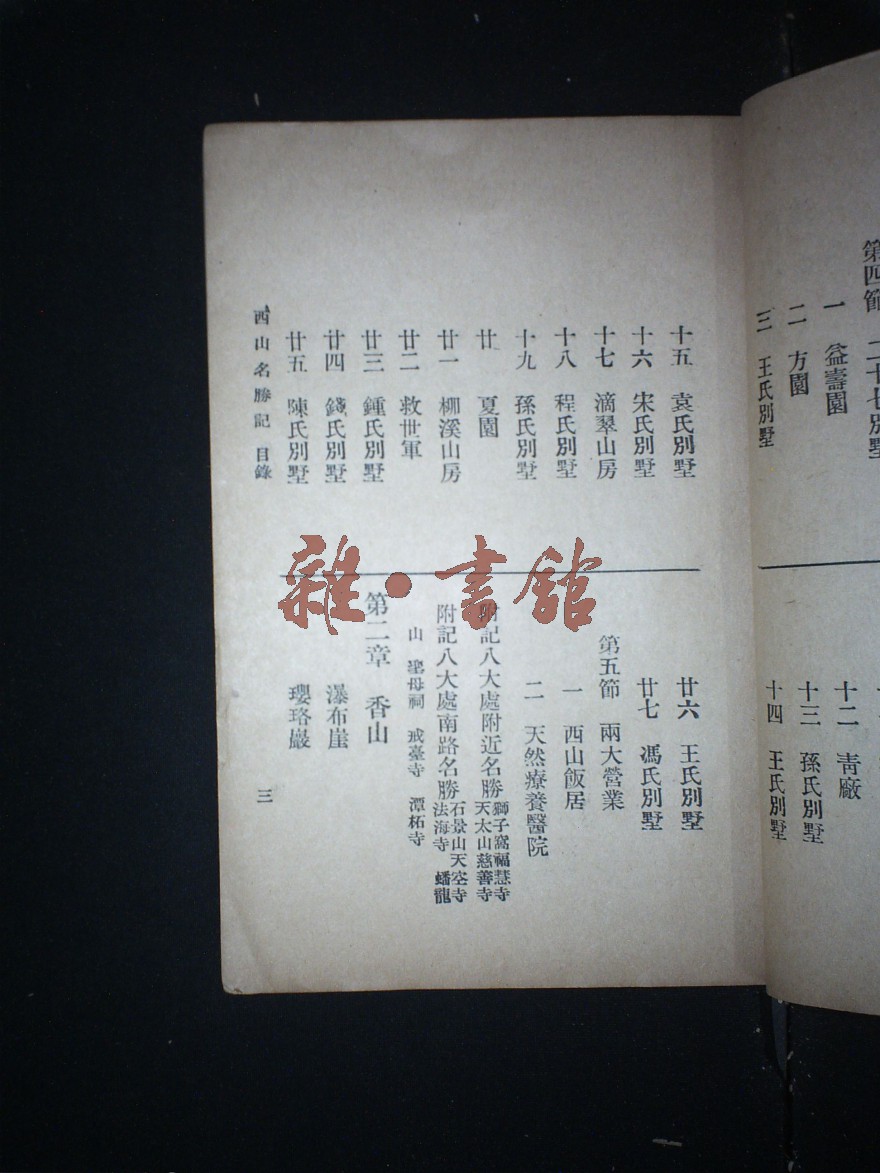 第四節　二十七別墅
一　益壽園
二　方園
三　王氏別墅
十二　靑廠
十三　孫氏別墅
十四　王氏別墅
十五　袁氏別墅
十六　宋氏別墅
十七　滴翠山房
十八　程氏別墅
十九　孫氏別墅
廿　夏園
廿一　柳溪山房
廿二　救世軍
廿三　鍾氏別墅
廿四　錢氏別墅
廿五　陳氏別墅
廿六　王氏別墅
廿七　馮氏別墅
第五節　兩大營業
一　西山飯居
二　天然療養醫院
附記八大處附近名勝
獅子窩福慧寺
天太山慈善寺
附記八大處南路名勝
石景山天空寺
法海寺　蟠龍
山　聖母祠　戒臺寺　潭柘寺
第二章　香山
瀑布崖
瓔珞巖
西山名勝記　目錄
三
雜·書館